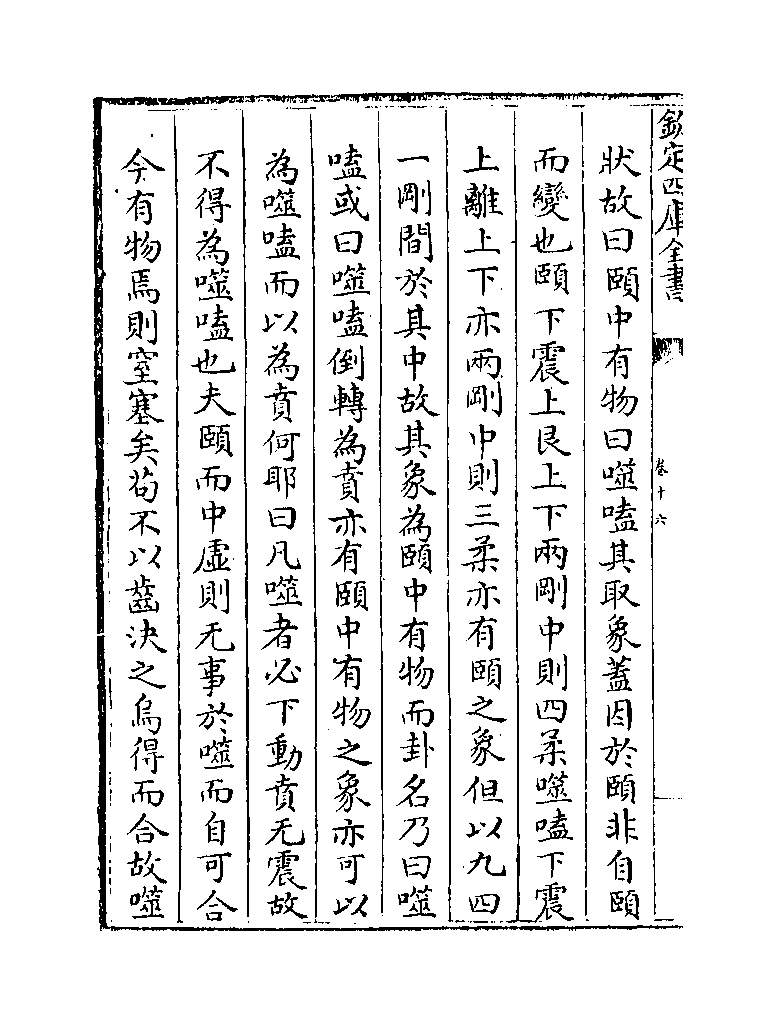 欽定四庫全書
卷十六
狀故曰頤中有物曰噬嗑其取象蓋因於頤非自頤
而變也頤下震上艮上下兩剛中則四柔噬嗑下震
上離上下亦兩剛中則三柔亦有頤之象但以九四
一剛間於其中故其象為頤中有物而卦名乃曰噬
嗑或曰噬嗑倒轉為賁亦有頤中有物之象亦可以
為噬嗑而以為賁何耶曰凡噬者必下動賁无震故
不得為噬嗑也夫頤而中虛則无事於噬而自可合
今有物焉則窒塞矣茍不以齒決之烏得而合故噬